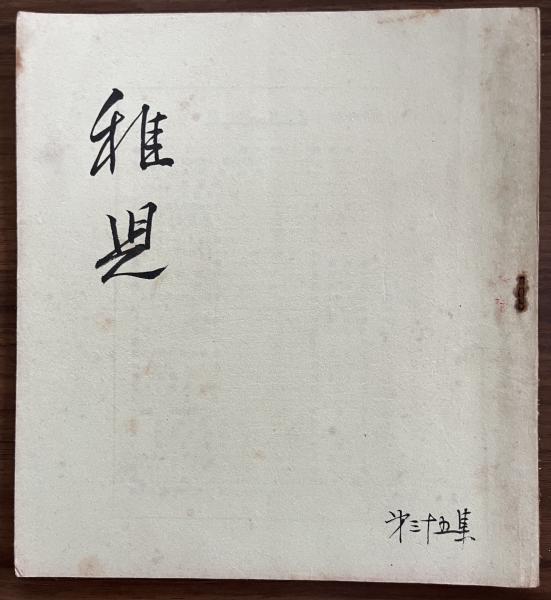 稚児
第三十五集